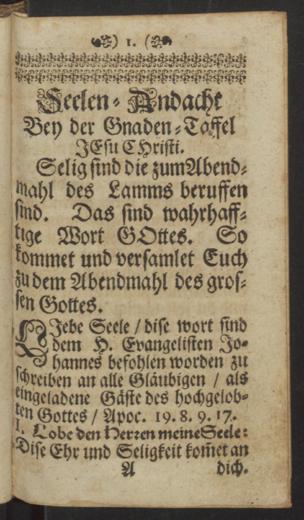 ) 1. (
Seelen-Andacht
Bey der Gnaden-Taffel
JEsu CHristi.
Selig sind die zum Abend-
mahl des Lamms beruffen
sind. Das sind wahrhaff-
tige Wort GOttes. So
kommet und versamlet Euch
zu dem Abendmahl des gros-
sen Gottes.
LJebe Seele / dise wort sind
dem H. Evangelisten Jo-
hannes befohlen worden zu
schreiben an alle Gläubigen / als
eingeladene Gäste des hochgelob-
ten Gottes / Apoc. 19. 8. 9. 17.
1. Lobe den Herren meine Seele:
Dise Ehr und Seligkeit kom̃et an
A dich.